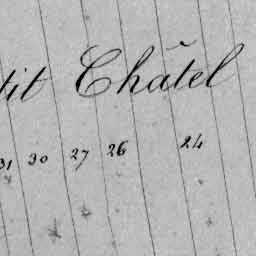 tit Châtel
31 30 27 26 24